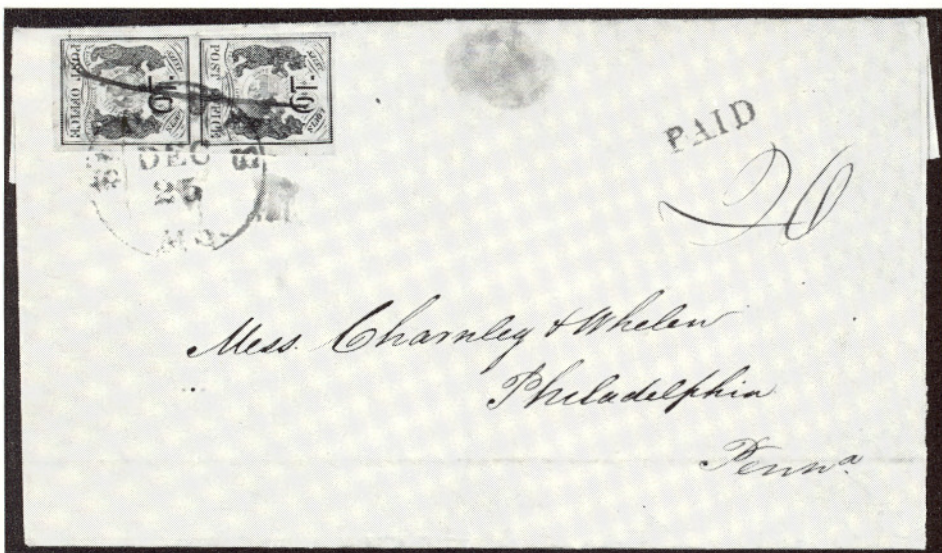 POST OFFICE
10.
POST OFFICE
10.
DEC
25
MO.
PAID
20
Mess. Charnley & Whelen
Philadelphia
Penna